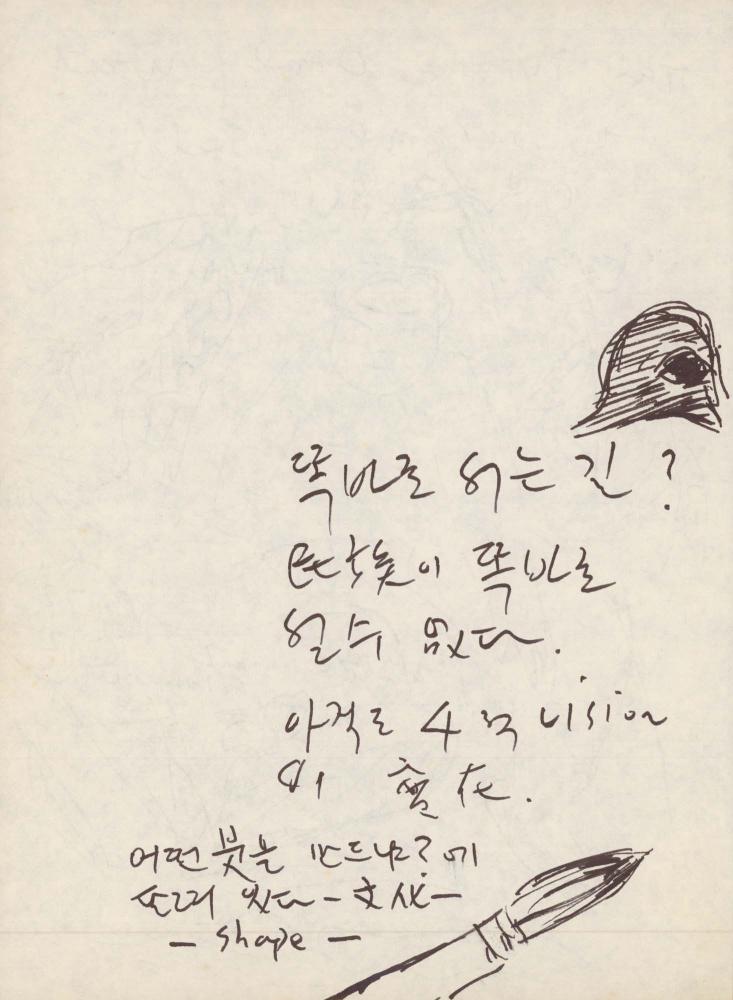 똑바로 서는 길?
民族이 똑바로
설수 없다.
아직도 4 vision
이 存在.
어떤 붓을 만드냐?에
달려 있다 - 文化 -
- shape -